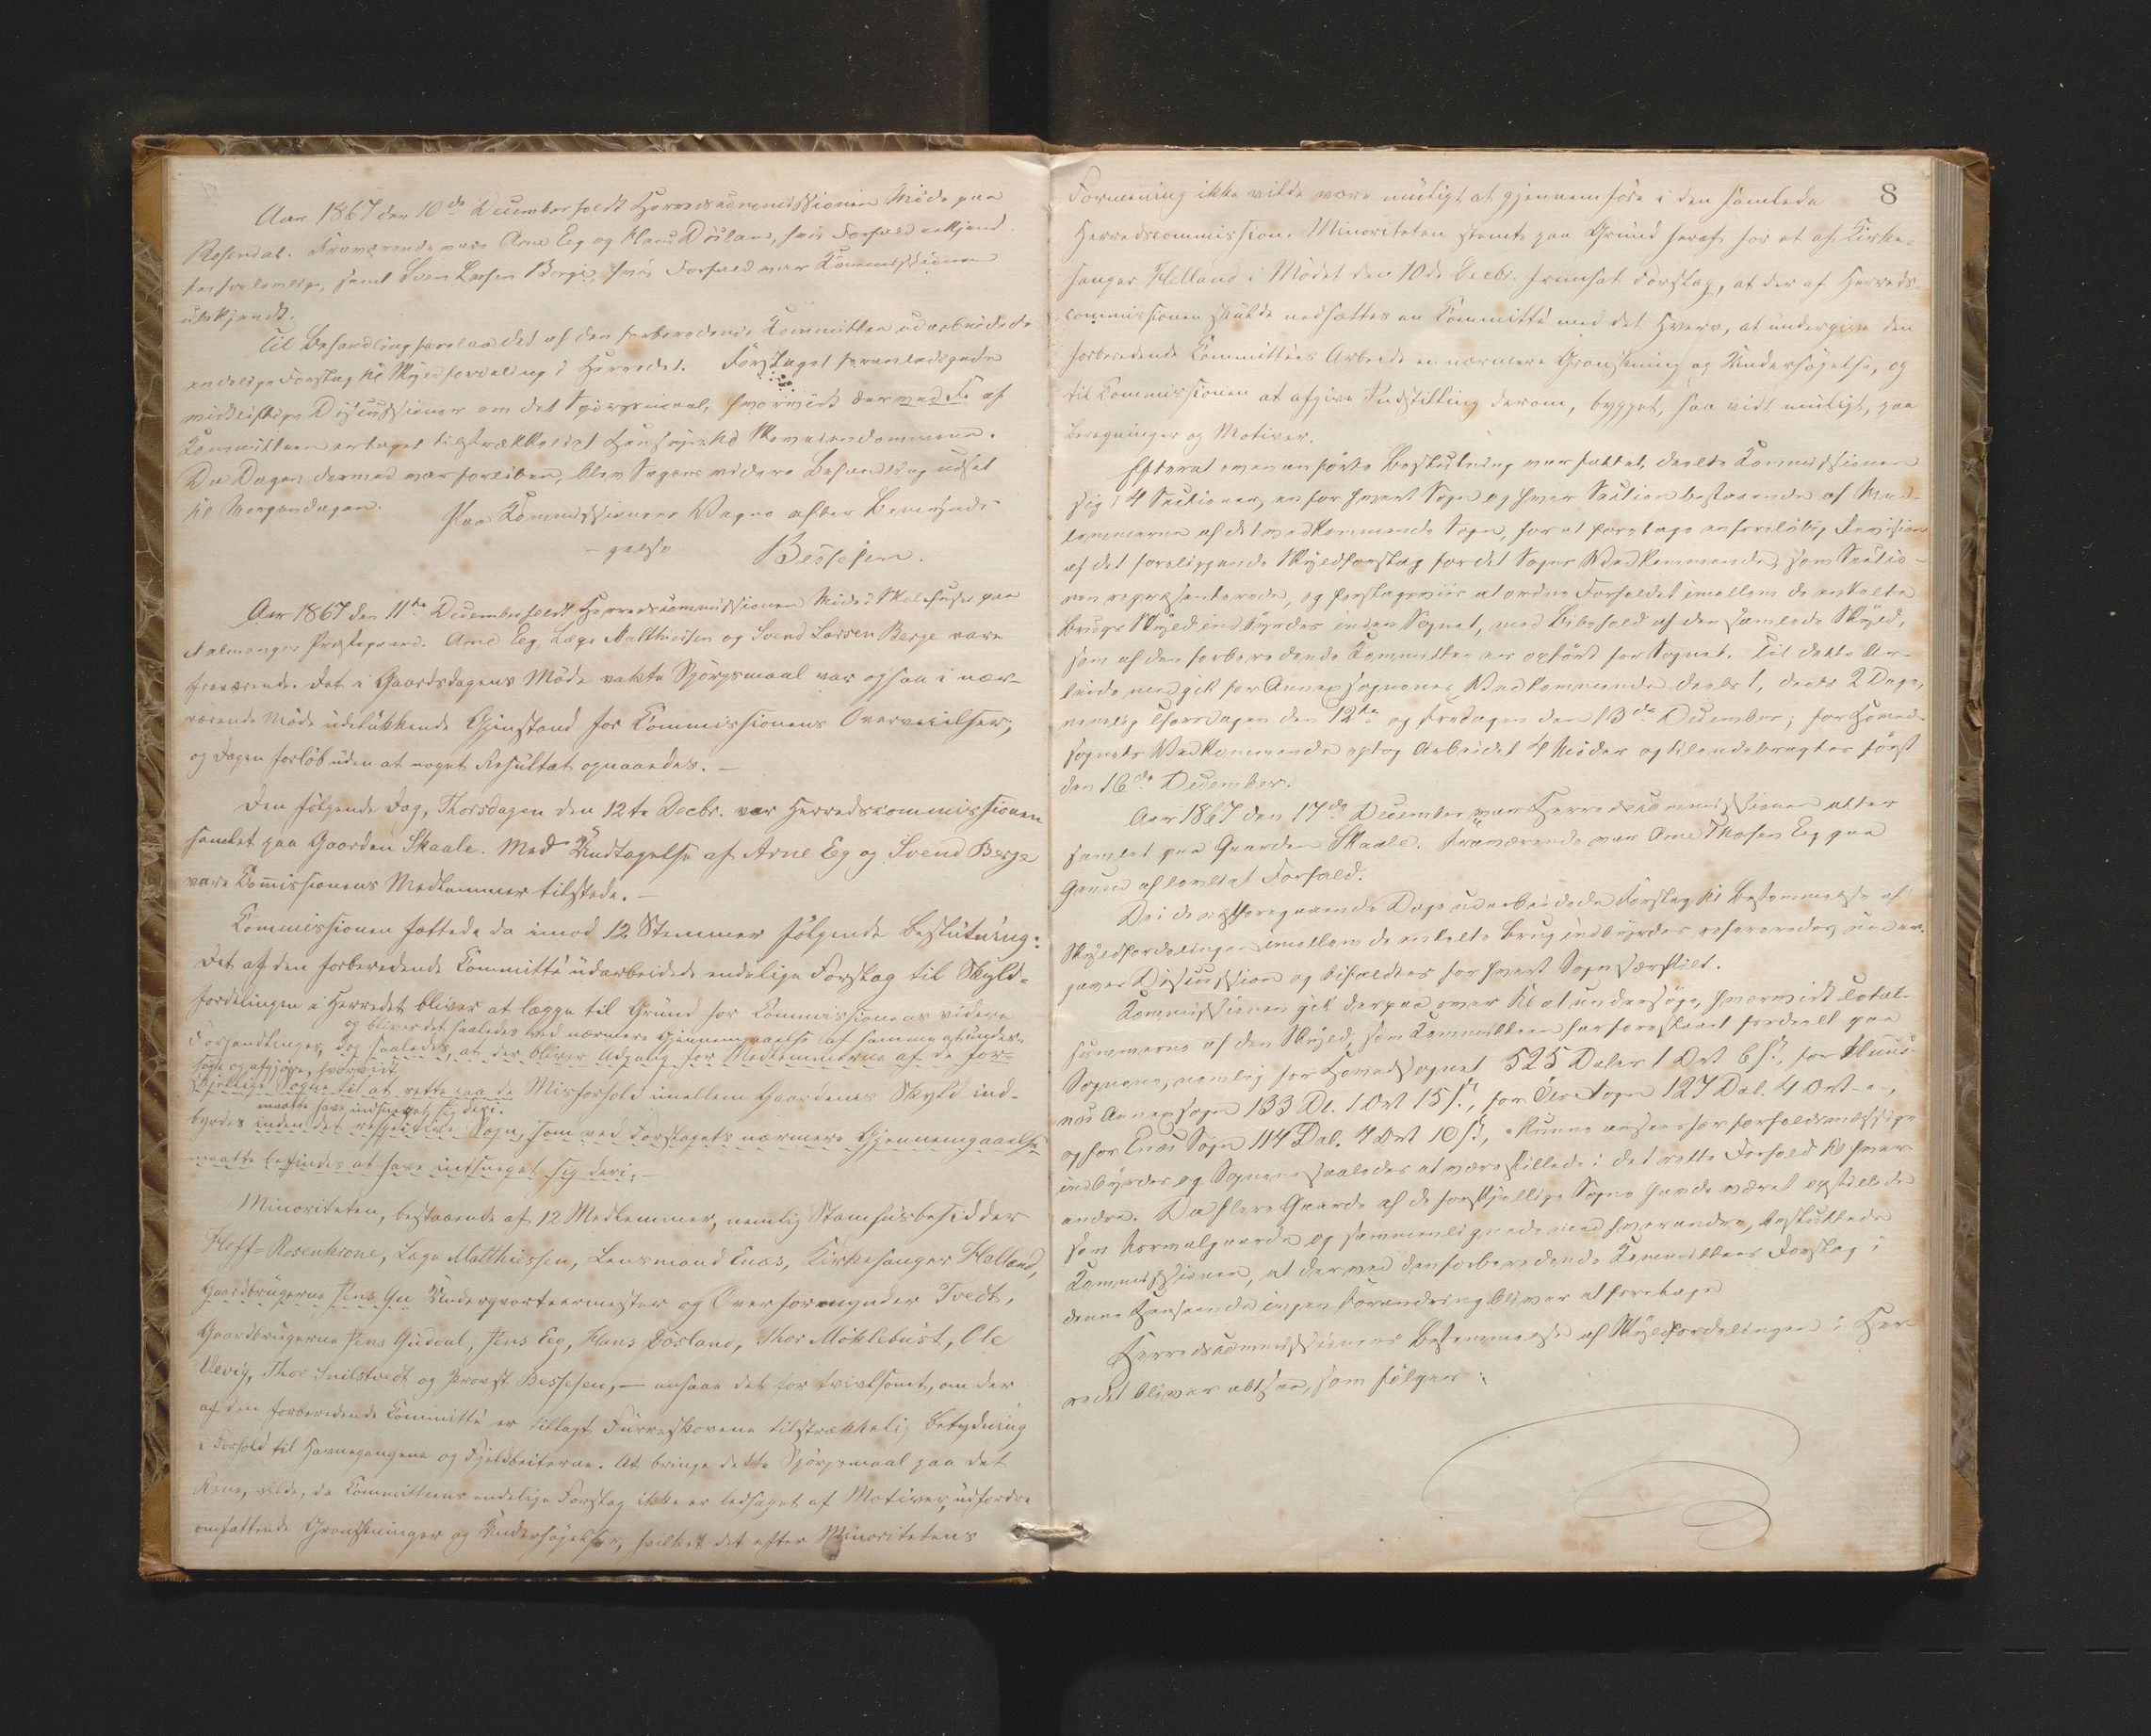 Aar 1867 den 10de December holdt Herredscommissionen Møde paa
Rosendal. Fraværende vare Arne Eeg og Hans Døsland, hvis Forfald ankjend-
tes for lovlige, samt Sven Larsen Berge, hvis Forfald var Kommissionen
ubekjendt.
Til Behandling forelaae det af den forberedende Kommittee udarbeidede
endelige Forslag til Skyldfordeling i Herredet. Forslaget foranledigede
Discussioner om det Spørgsmaal, hvorvidt der af
Kommitteen er taget tilstrækkeligt Hensyn til Skoveiendommene.
Da Dagen dermed var forløben, blev Sagens videre Behandling udsat
til Morgendagen.
Paa Kommissionens Vegne efter Bemyndi-
gelse
Bessesen.
Aar 1867 den 11te December holdt Herredscommissionen Møde i Skolehuset paa
Malmanger Præstegaard. Arne Eeg, Læge Matthiessen og Svend Larsen Berge vare
fraværende. Det i Gaardsdagens Møde vakte Spørgsmaal var ogsaa i nær-
værende Møde udelukkende Gjenstand for Commissionens Overveielser,
og Dagen forløb uden at noget Resultat opnaaedes. –
Den følgende Dag, Thorsdagen den 12te Decbr. var Herredscommissionen
samlet paa Gaarden Skaale. Med Undtagelse af Arne Eeg og Svend Berge
vare Commissionens Medlemmer tilstede. –
Commissionen fattede da imod 12 Stemmer følgende Beslutning:
Det af den forberedende Committé udarbeidede endelige Forslag til Skyld-
fordelingen i Herredet bliver at lægge til Grund for Commissionens videre
og bliver det saaledes ved nærmere Gjennemgaaelse af samme at under-
Forhandlinger, dog saaledes, at der bliver Adgang for Medlemmerne af de for-
søge og afgjøre, hvorvidt
skjellige Sogne til at rette paa de Misforhold imellem Gaardenes Skyld ind-
maatte have indsneget sig deri.
byrdes inden det respective Sogn, som ved Forslagets nærmere Gjennemgaaelse
maatte befindes at have indsneget sig deri. –
Minoriteten, bestaaende af 12 Medlemmer, nemlig Stamhusbesidder
Hoff-Rosenkrone, Læge Matthiessen, Lensmand Enæs, Kirkesanger Helland,
Gaardbrugerne Jens Gu Underqvarteermester og Overformynder Tvedt,
Gaardbrugerne Jens Guddal, Jens Eeg, Hans Døsland, Thor Møklebust, Ole
Ulvevig, Thor Snilstvedt og Provst Bessesen, – ansaae det for tvivlsomt, om der
af den forberedende Committé er tillagt Furreskovene tilstrækkelig Betydning
i Forhold til Havnegangene og Fjeldbeiterne. At bringe dette Spørgsmaal paa det
Rene, vilde, da Committeens endelige Forslag ikke er ledsaget af Motiver, udfordre
omfattende Granskninger og Undersøgelser, hvilket det efter Minoritetens
8
Formening ikke vilde være muligt at gjennemføre i den samlede
Herredscommission. Minoriteten stemte paa Grund heraf for et af Kirke-
sanger Helland i Mødet den 10de Decbr. fremsat Forslag, at der af Herreds-
commissionen skulde nedsættes en Committé med det Hverv, at undergive den
forberedende Committées Arbeide en nærmere Granskning og Undersøgelse, og
til Kommissionen at afgive Indstilling derom, bygget, saa vidt muligt, paa
Beregninger og Motiver.
Efterat ovenanførte Beslutning var fattet, deelte Kommissionen
sig i 4 Sectioner, en for hvert Sogn og hver Section bestaaende af Med-
lemmerne af det vedkommende Sogn, for at foretage en foreløbig Revision
af det foreliggende Skyldforslag for det Sogns Vedkommende, som Sectio-
nen repræsenterede, og forslagsviis at ordne Forholdet imellem de enkelte
Brugs Skyld indbyrdes inden Sognet, med Bibehold af den samlede Skyld,
som af den forberedende Kommittee er opført for Sognet. Til dette Ar-
beide medgik for Annexsognenes Vedkommende deels 1, deels 2 Dage,
nemlig Thorsdagen den 12te og Fredagen den 13de December; for Hoved-
sognets Vedkommende optog Arbeidet 4 Møder og tilendebragtes først
den 16de December.
Aar 1867 den 17de December var Herredscommissionen atter
samlet paa Gaarden Skaale. Fraværende var Arne Thosen Eeg paa
Grund af lovligt Forfald.
De i de næstforegaaende Dage udarbeidede Forslag til Bestemmelse af
Skyldfordelingen imellem de enkelte Brug indbyrdes refereredes under-
gaver Discussion og bifaldtes for hvert Sogn særskilt.
Kommissionen gik derpaa over til at undersøge, hvorvidt Total-
summerne af den Skyld, som Kommitteen har foreslaaet fordeelt paa
Sognene, nemlig for Hovedsognet 525 Daler 1 Ort 6 ß, for Huus-
næs Annexsogn 133 Dl. 1 Ort 15 ß, for Ølve Sogn 127 Dal. 4 Ort – „ –,
og for Enæs Sogn 114 Dal. 4 Ort 10 ß, kunne ansees for forholdsmæssige
indbyrdes og Sognene saaledes at være stillede i det rette Forhold til hver-
andre. Da flere Gaarde af de forskjellige Sogne havde været opstillede
som Normalgaarde og sammenlignede med hverandre, besluttede
Kommissionen, at der ved den forberedende Kommittees Forslag i
denne Henseende ingen Forandring bliver at foretage
Herredscommissionens Bestemmelse af Skyldfordelingen i Her-
redet bliver altsaa, som følger: